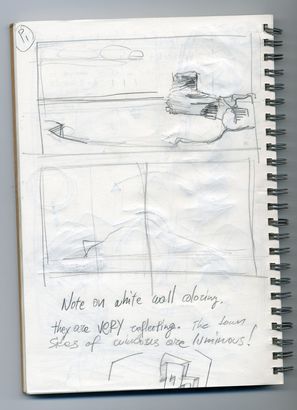 P1
Note on white wall coloring.
they are VERY reflecting. The down
sides of are luminous!